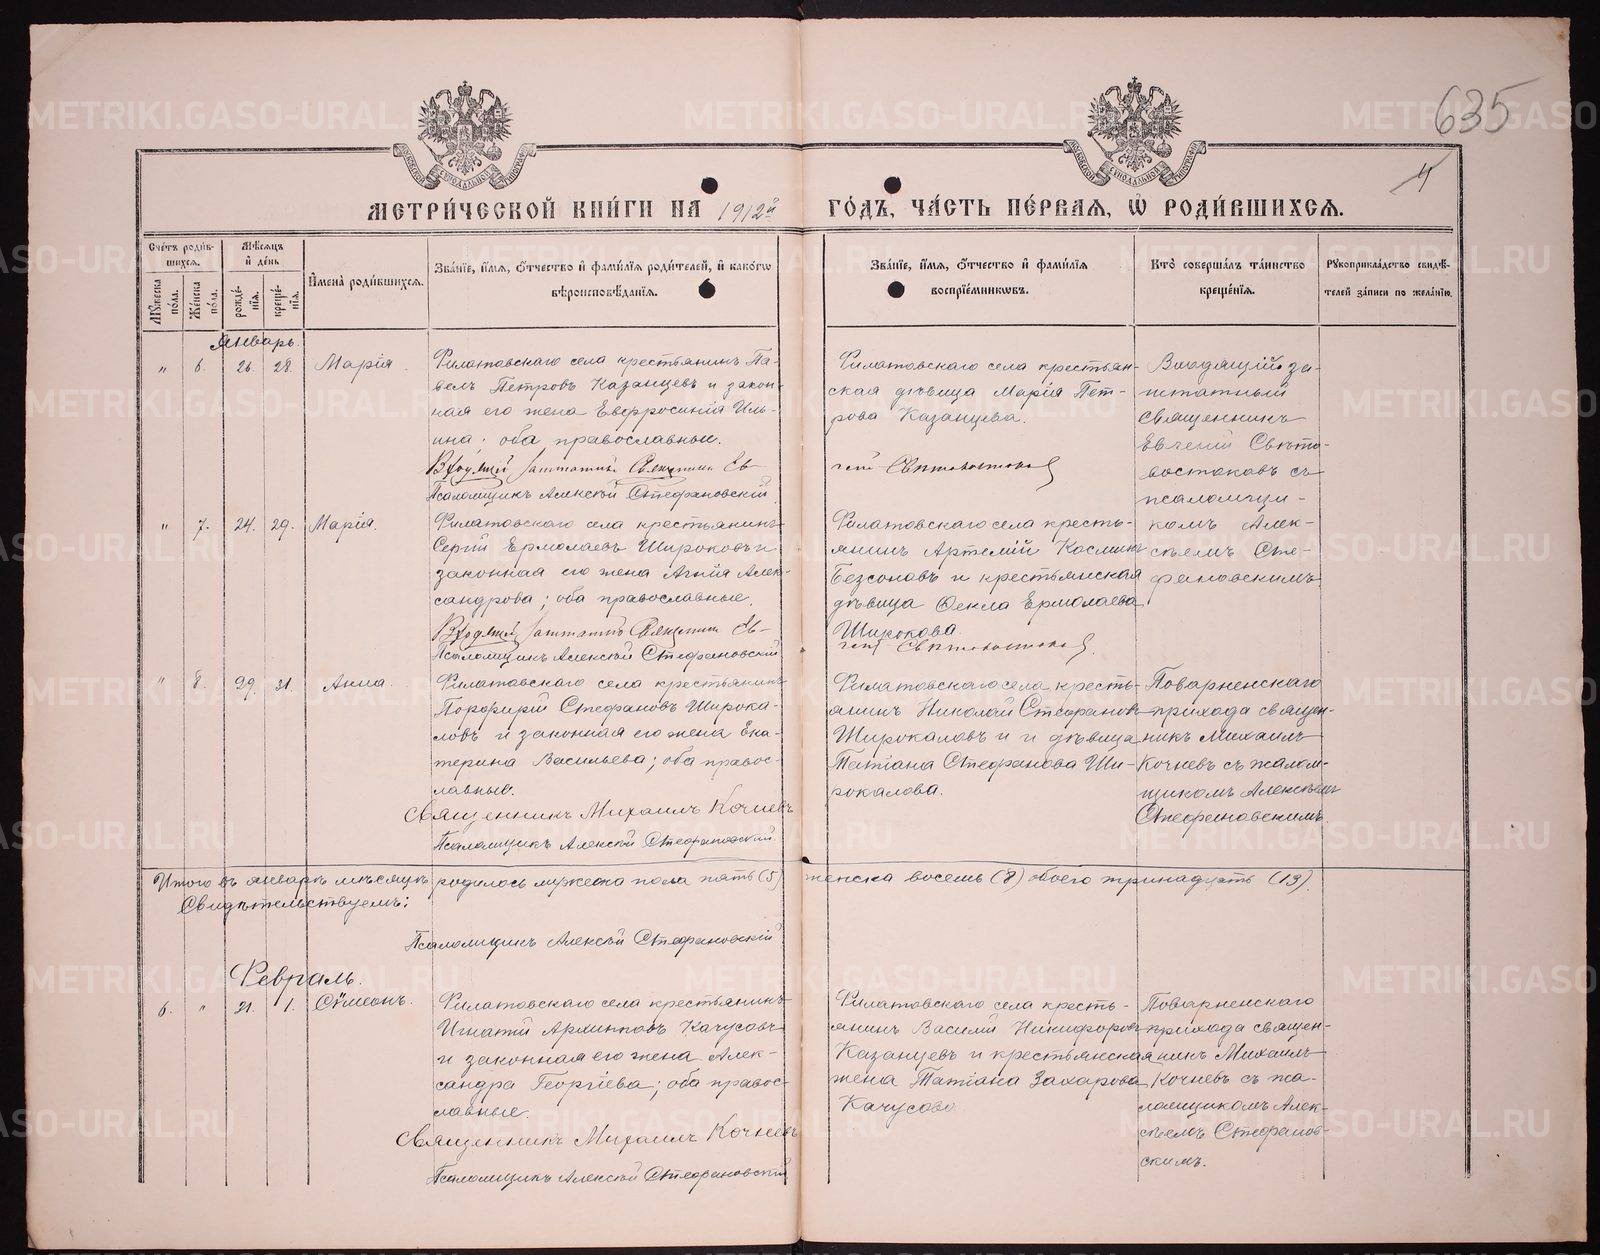 635
4
МЕТРИ́ЧЕСКОЙ КНИ́ГИ НА 1912й ГО́ДЪ, ЧА́СТЬ ПЕ́РВАЯ, Ѡ҆ РОДИ́ВШИХСЯ.
Сче́тъ роди́в-
шихся.
Мꙋ́жеска по́ла.
Же́нска по́ла.
Мѣ́сяцъ и҆ де́нь
рожде́-
нїя.
креще́-
нїя.
И҆мена̀ роди́вшихся.
Зва́нїе, и҆́мя, о҆́тчество и҆ фамѝлїѧ роди́телей, и҆ како́гѡ
вѣроисповѣ́данїѧ.
Зва́нїе, и҆́мя, о҆́тчество и҆ фами́лїѧ
воспрїе́мникѡвъ.
Кто̀ соверша́лъ та́инство
креще́нїѧ.
Рꙋкоприкла́дство свидѣ́-
телей за́писи по жела́нїю.
Январь.
" 6. 26. 28. Марія.
Филатовскаго села крестьянинъ Па-
велъ Петровъ Казанцевъ и закон-
ная его жена Евфросинія Иль-
ина; оба православные.
Входящій заштатный Священникъ Ев-
гений Свѣтовостоковъ
Псаломщикъ Алексѣй Стефановскій
Филатовскаго села крестьян-
ская дѣвица Марія Пет-
рова Казанцева.
Входящій за-
штатный
священникъ
Евгеній Свѣто-
востоковъ съ
псаломщи-
комъ Алек-
сѣемъ Сте-
фановскимъ
" 7. 24. 29. Марія.
Филатовскаго села крестьянинъ
Сергій Ермолаевъ Широковъ и
законная его жена Агнія Алек-
сандрова; оба православные.
Входящій заштатный Священникъ Ев-
гений Свѣтовостоковъ
Псаломщикъ Алексѣй Стефановскій
Филатовскаго села кресть-
янинъ Артемій Косминъ
Безсоновъ и крестьянская
дѣвица Ѳекла Ермолаева
Широкова
" 8. 29. 31. Анна.
Филатовскаго села крестьянинъ
Порфирій Стефановъ Широка-
ловъ и законная его жена Ека-
терина Васильева; оба правос-
лавные.
Священникъ Михаилъ Кочневъ
Псаломщикъ Алексѣй Стефановскій
Филатовскаго села кресть-
янинъ Николай Стефановъ
Широкаловъ и дѣвица
Татіана Стефанова Ши-
рокалова.
Поварненскаго
прихода священ-
никъ Михаилъ
Кочневъ съ псалом-
щикомъ Алексѣемъ
Стефановскимъ
Итого въ январѣ мѣсяцѣ родилось мужеска пола пять (5) женска восемь (8) обоего тринадцать (13).
Свидѣтельствуемъ:
Псаломщикъ Алексѣй Стефановскій
Февраль.
6. " 31. 1. Сѵмеонъ.
Филатовскаго села крестьянинъ
Игнатій Архиповъ Качусовъ
и законная его жена Алек-
сандра Георгіева; оба правос-
лавные.
Священникъ Михаилъ Кочневъ
Псаломщикъ Алексѣй Стефановскій
Филатовскаго села кресть-
янинъ Василій Никифоровъ
Казанцевъ и крестьянская
жена Татіана Захарова
Качусова
Поварненскаго
прихода священ-
никъ Михаилъ
Кочневъ съ пса-
ломщикомъ Алек-
сѣемъ Стефанов-
скимъ.
METRIKI.GASO-URAL.RU